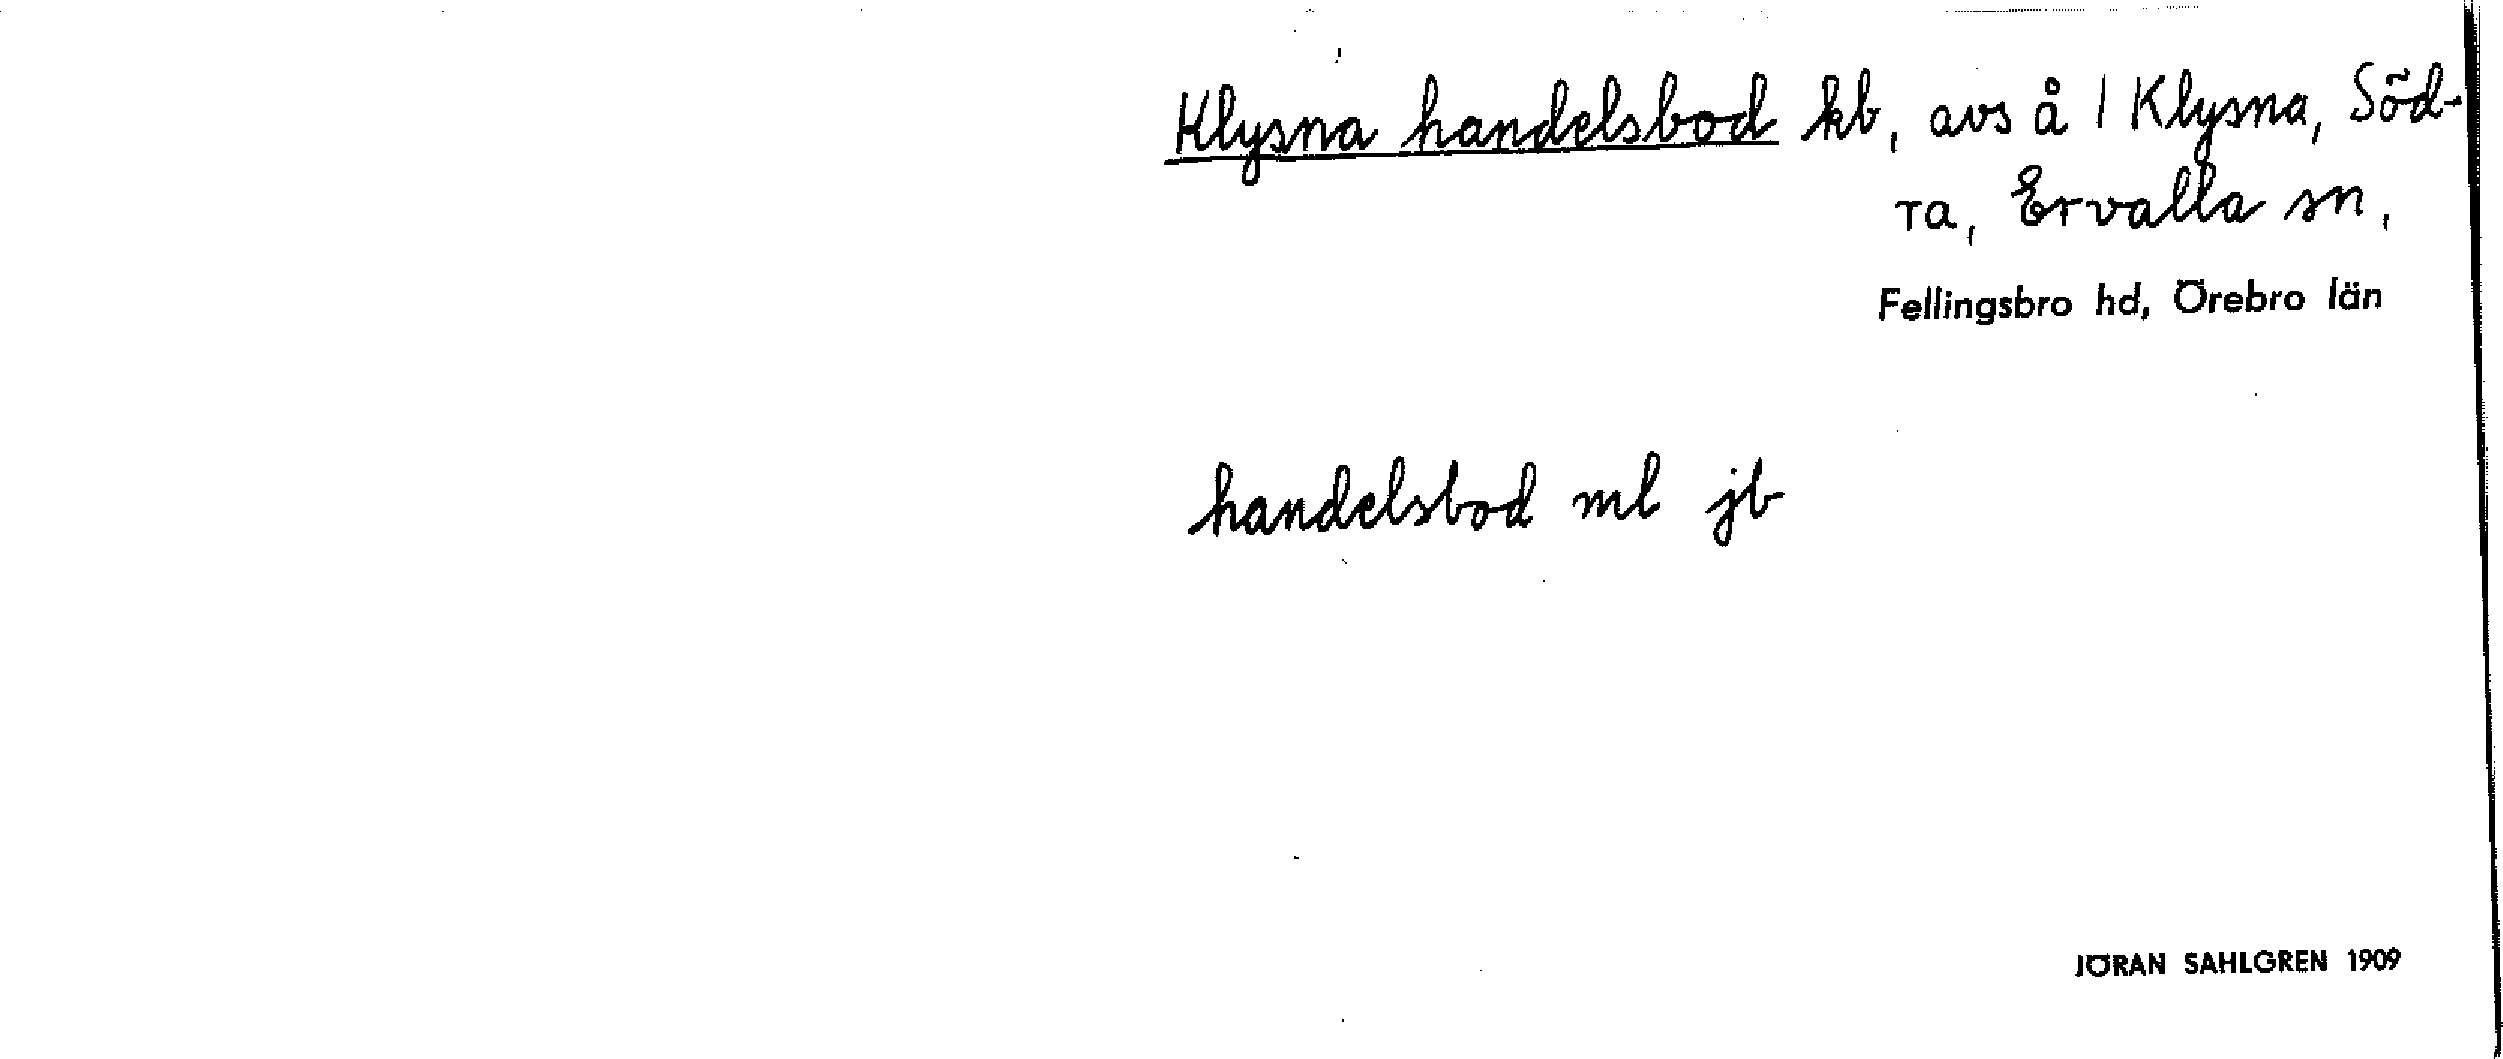 Klysna handelsbod kb, avs å 1 Klysna, Söd-
ra, Ervalla sn,
Fellingsbro hd, Örebro län
handelsbod ml jb
JÖRAN SAHLGREN 1909